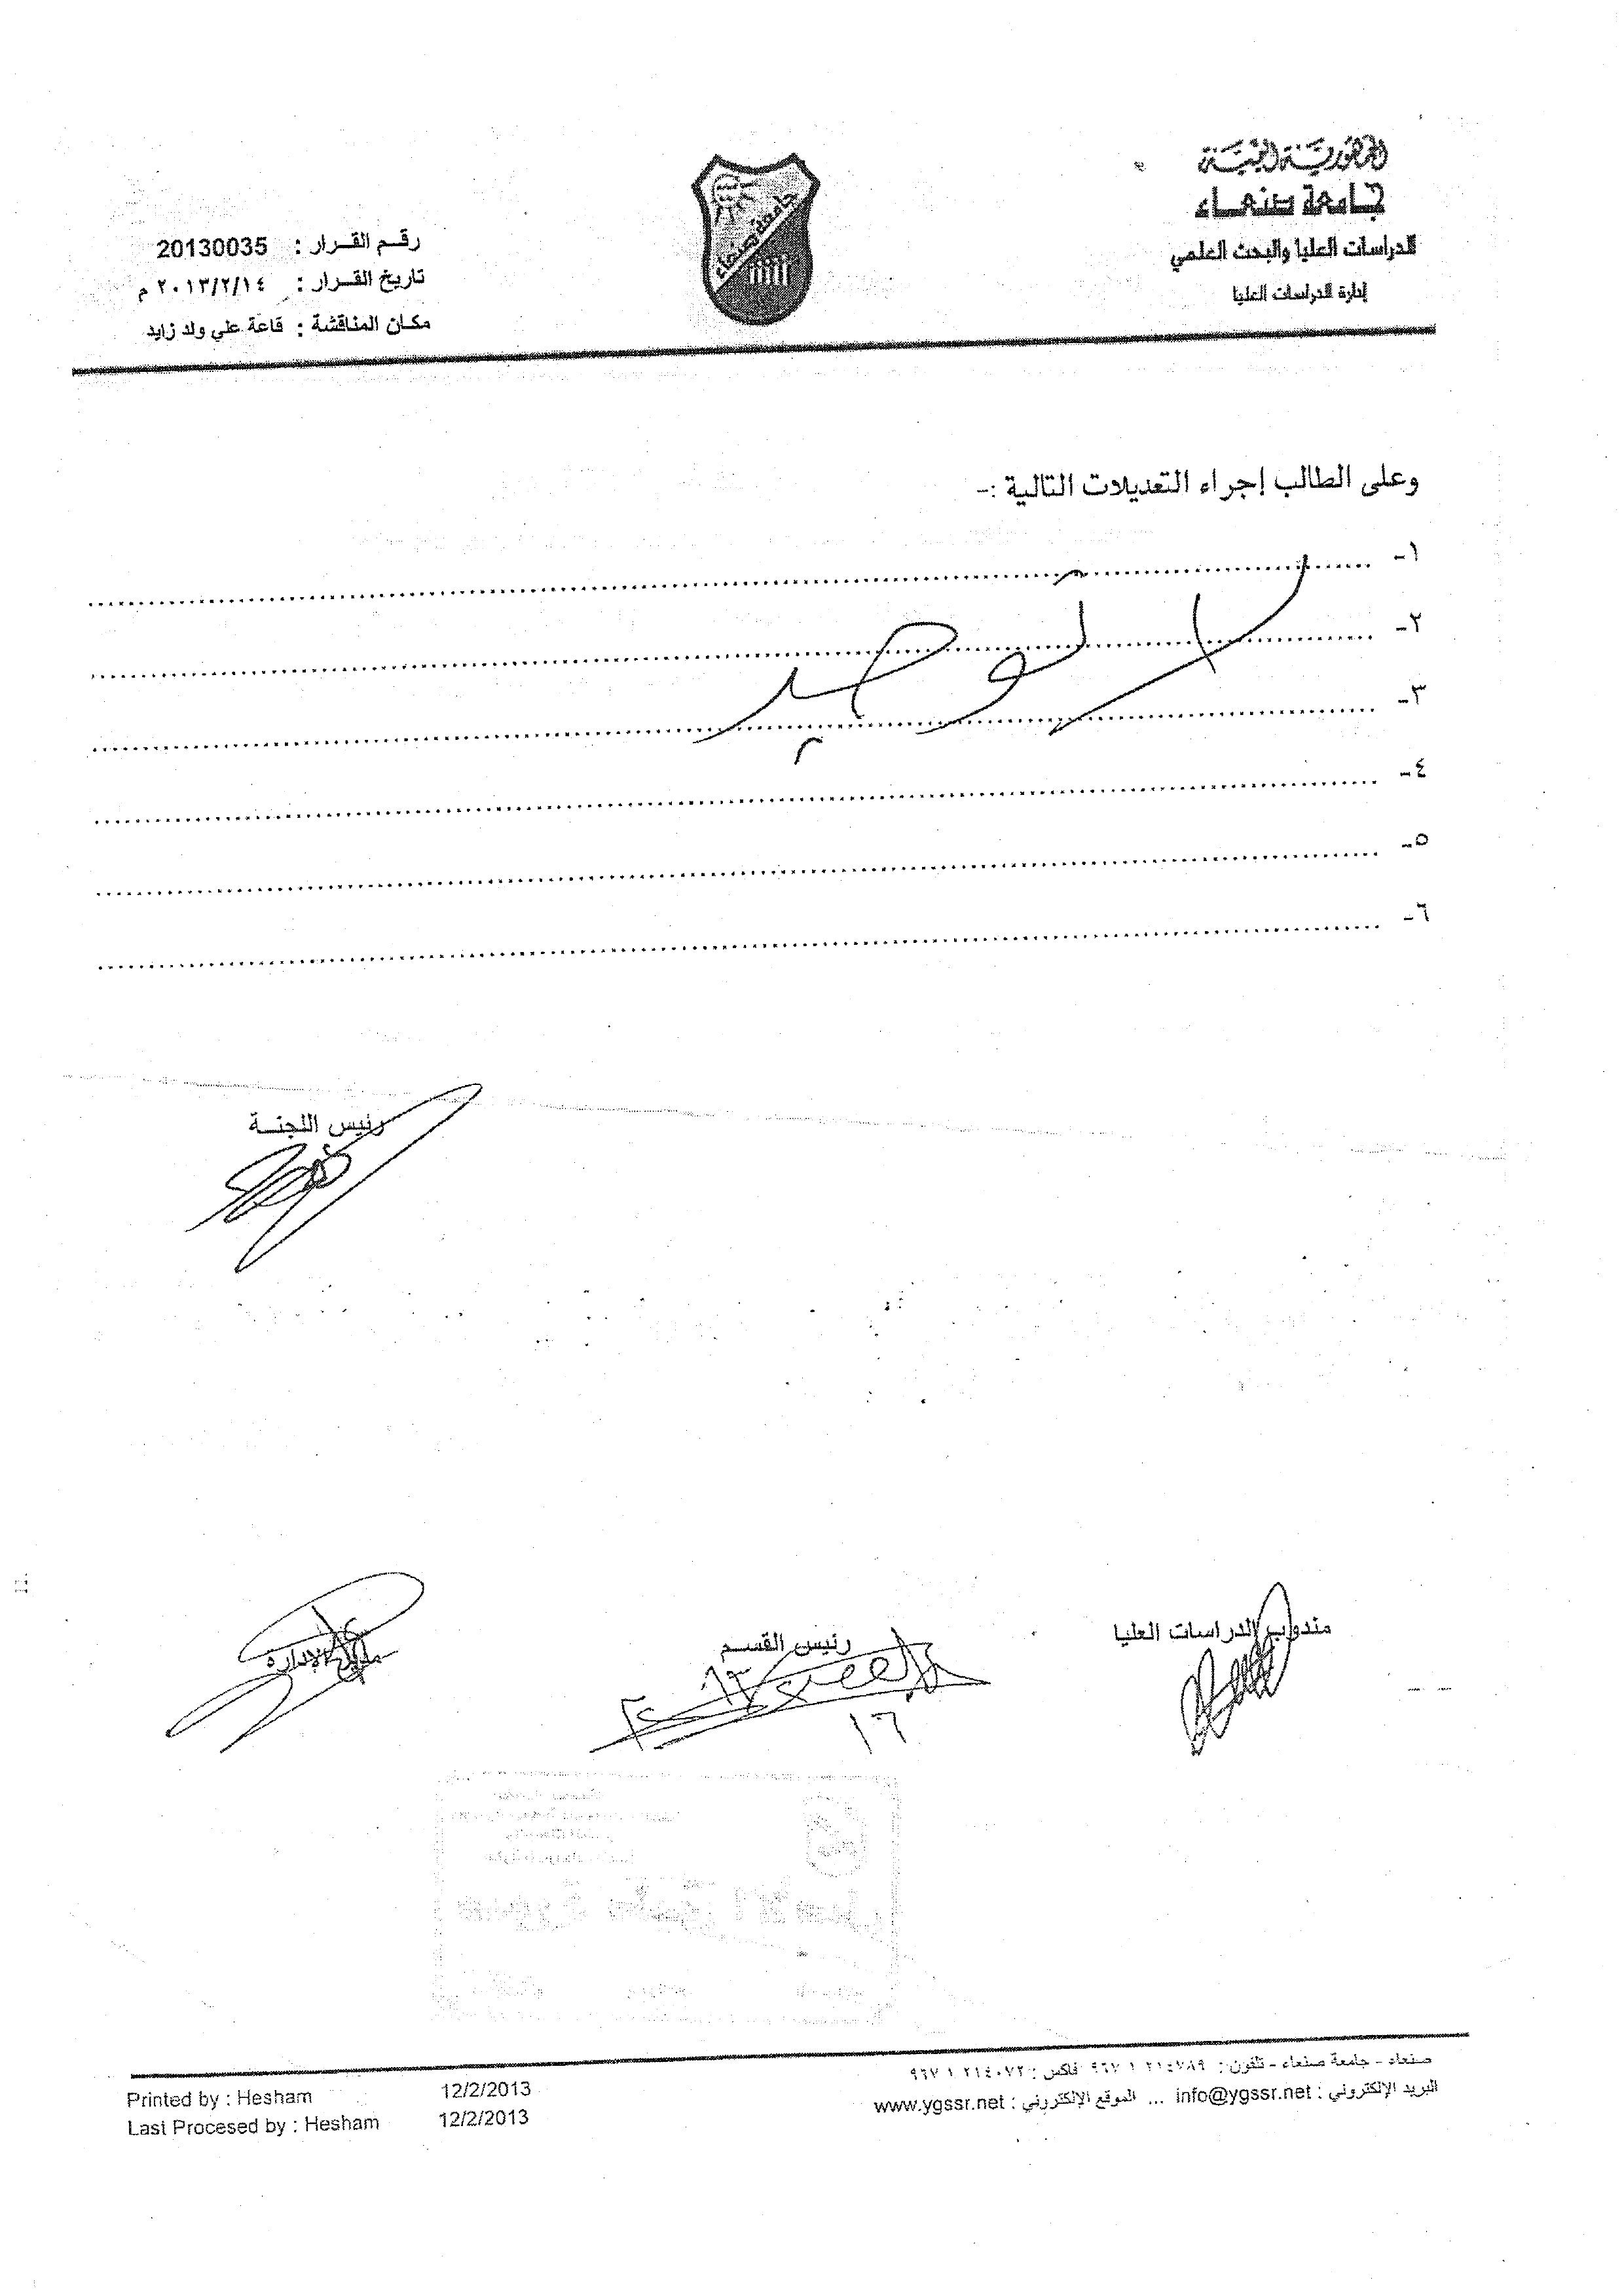 الجمهورية اليمنية
جامعة صنعاء
الدراسات العليا والبحث العلمي
إدارة الدراسات العليا
جامعة صنعاء
رقم القرار : 20130035
تاريخ القرار : ٢٠١٣/٢/١٤ م
مكان المناقشة : قاعة علي ولد زايد
وعلى الطالب إجراء التعديلات التالية :-
١-
٢-
٣-
٤-
٥-
٦-
لا توجد
رئيس اللجنة
مندوب الدراسات العليا
رئيس القسم
مدير الإدارة
صنعاء - جامعة صنعاء - تلفون : ٢١٤٧٨٩ ١ ٩٦٧ فاكس : ٢١٤٠٧٢ ١ ٩٦٧
البريد الإلكتروني : info@ygssr.net ... الموقع الإلكتروني : www.ygssr.net
Printed by : Hesham 12/2/2013
Last Procesed by : Hesham 12/2/2013